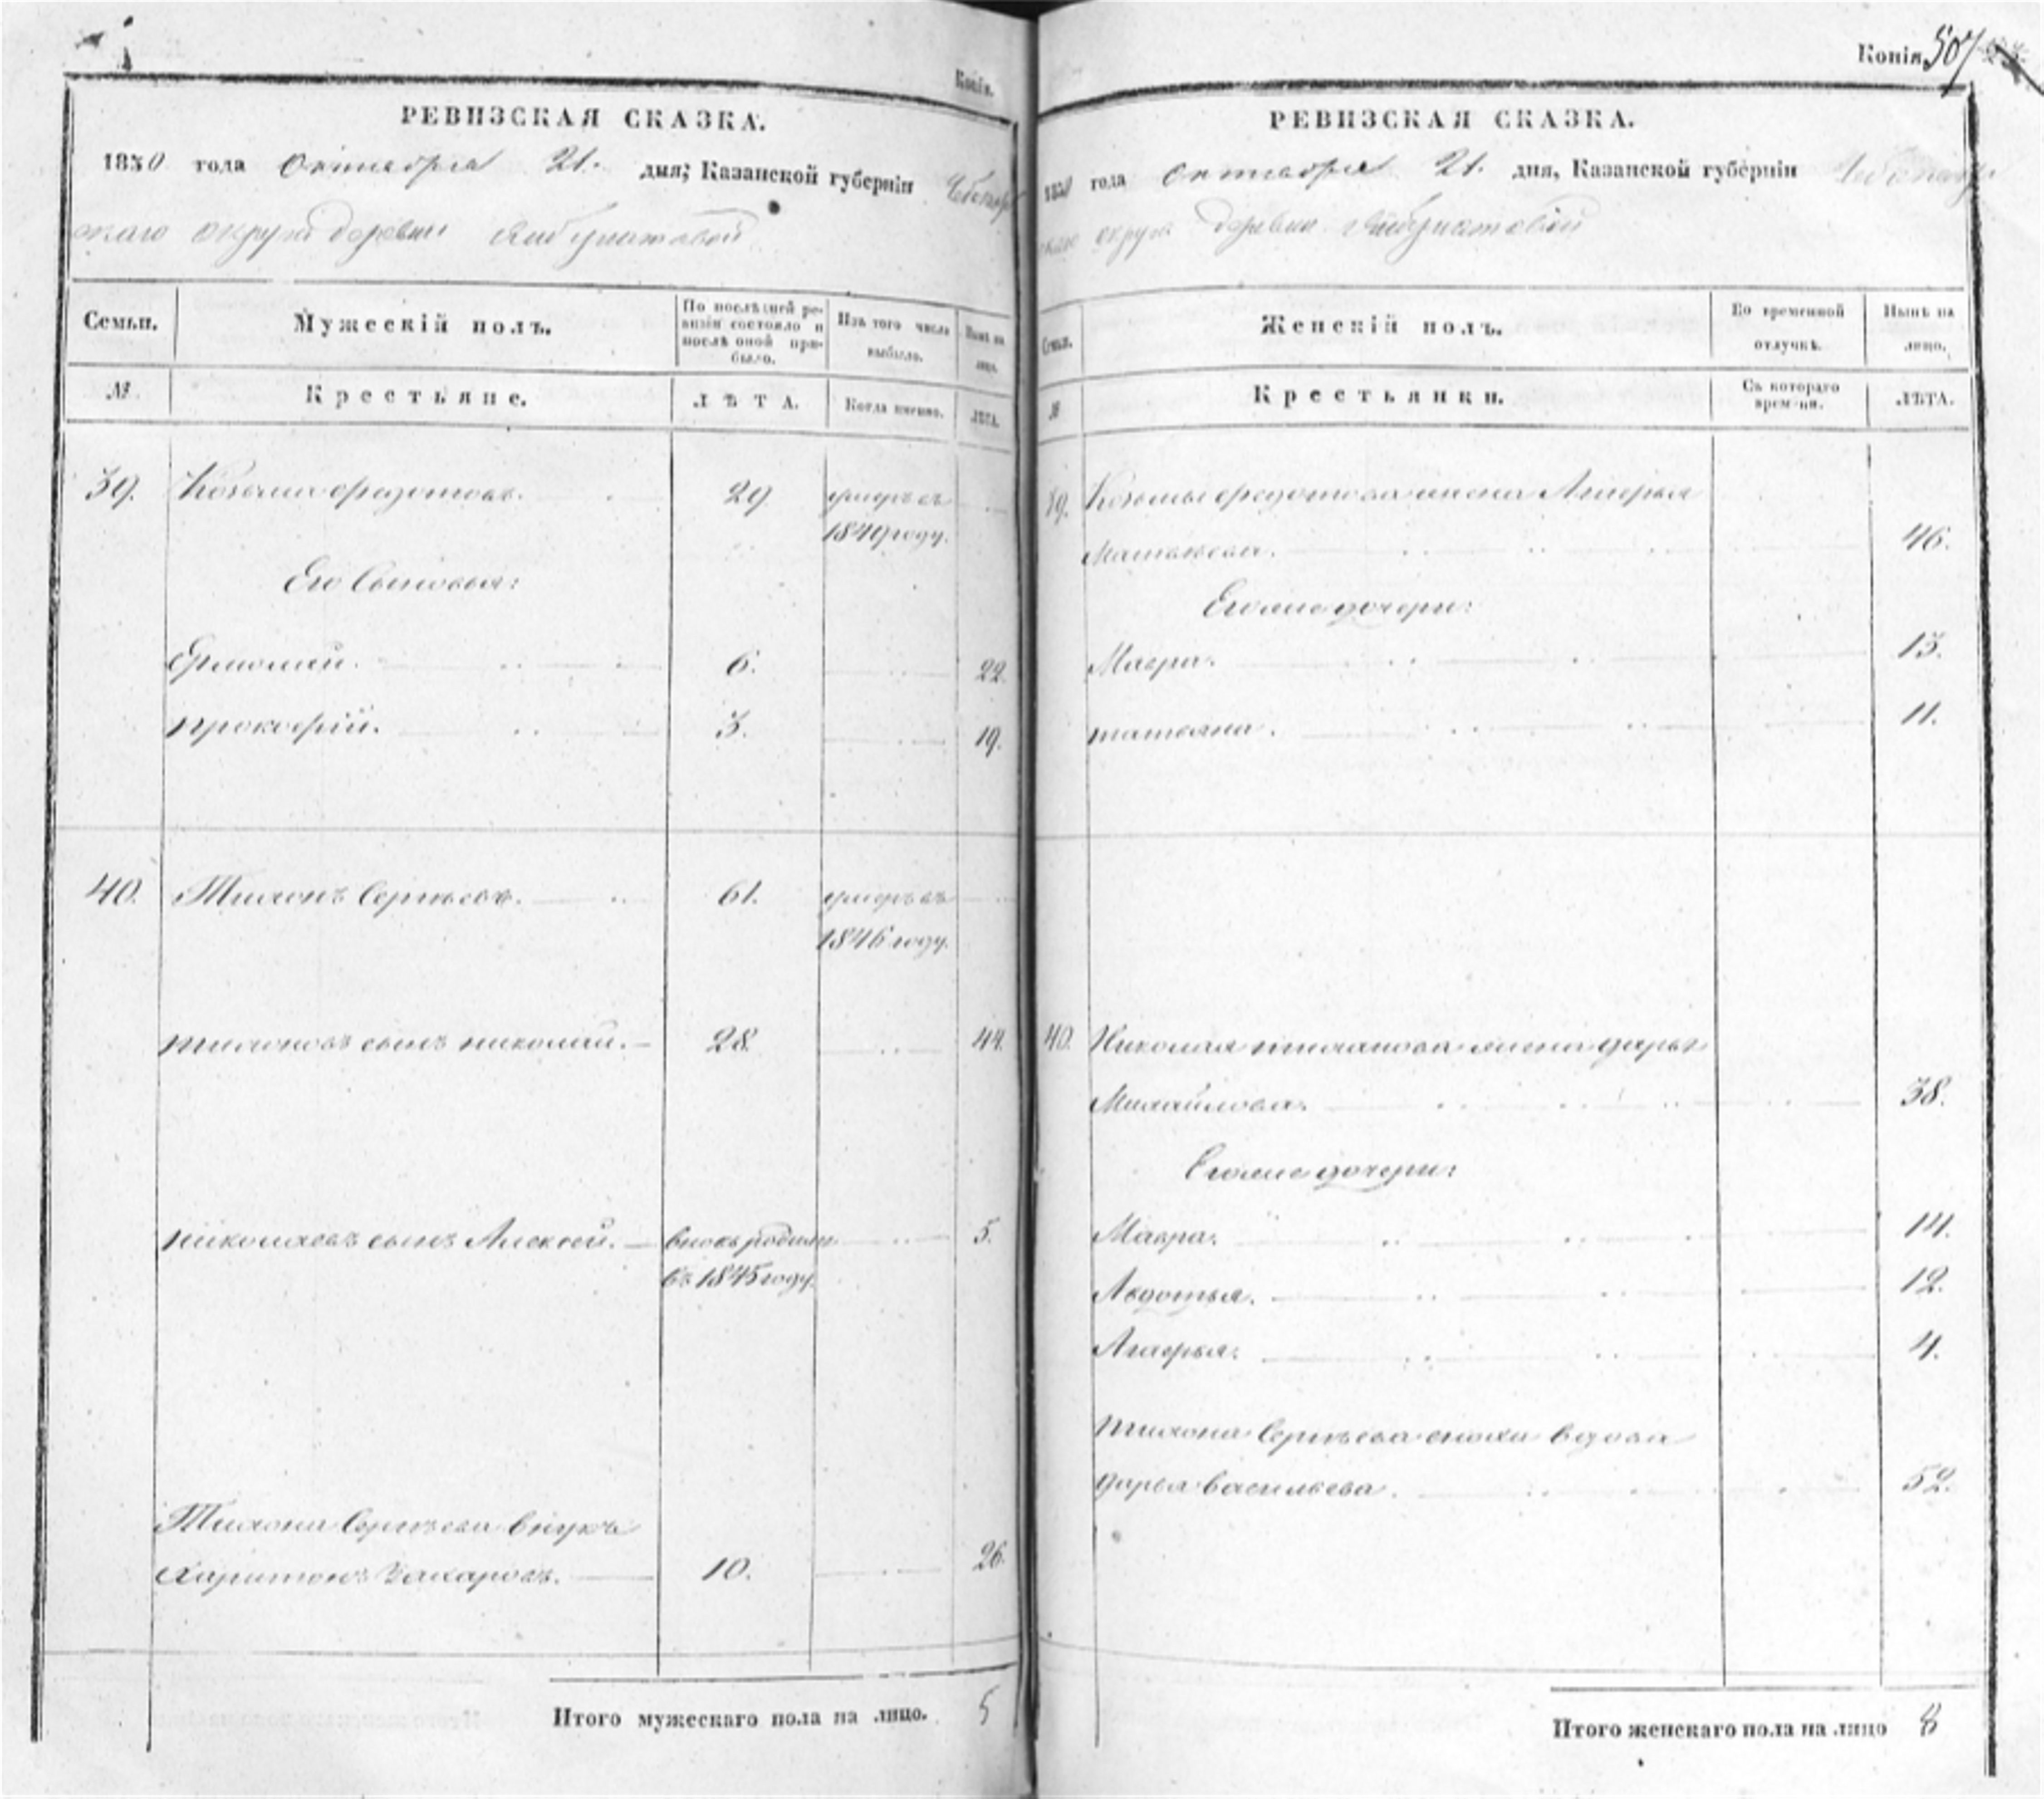 Копія.
РЕВИЗСКАЯ СКАЗКА.
1850 года Октября 21. дня; Казанской губерніи Чебоксар
скаго округа деревни
Семьи.
Мужескій полъ.
По послѣдней ре-
визіи состояло и
послѣ оной при-
было.
Изъ того числа
выбыло.
Нынѣ на
лицо.
№
Крестьяне.
ЛѢТА.
Когда именно.
ЛѢТА.
39. Козьма Федотовъ. 29 умеръ въ
1849 году.
Его Сыновья:
Ермолай. 6. 22.
Прокофій. 3. 19.
40. Тихонъ Сергѣевъ. 61. умеръ въ
1846 году.
Тихоновъ сынъ Николай. 28. 44.
Николаевъ сынъ Алексей. вновь родился 5.
въ 1845 году.
Тихона Сергѣева внукъ
Харитонъ Захаровъ. 10. 26.
Итого мужескаго пола на лицо. 5
Копія. 507
РЕВИЗСКАЯ СКАЗКА.
1850 года Октября 21. дня, Казанской губерніи Чебоксар
скаго округа деревни
Семьи.
Женскій полъ.
Во временной
отлучкѣ.
Нынѣ на
лицо.
№
Крестьянки.
Съ котораго
времени.
ЛѢТА.
39. Козьмы Федотова жена
Матвѣева. 46.
Его же дочери:
Мавра. 13.
Татьяна. 11.
40. Николая Тихонова жена Дарья
Михайлова. 38.
Его же дочери:
Мавра. 14.
Авдотья. 12.
Агафья. 4.
Тихона Сергѣева сноха вдова
Дарья Васильева. 52.
Итого женскаго пола на лицо 8